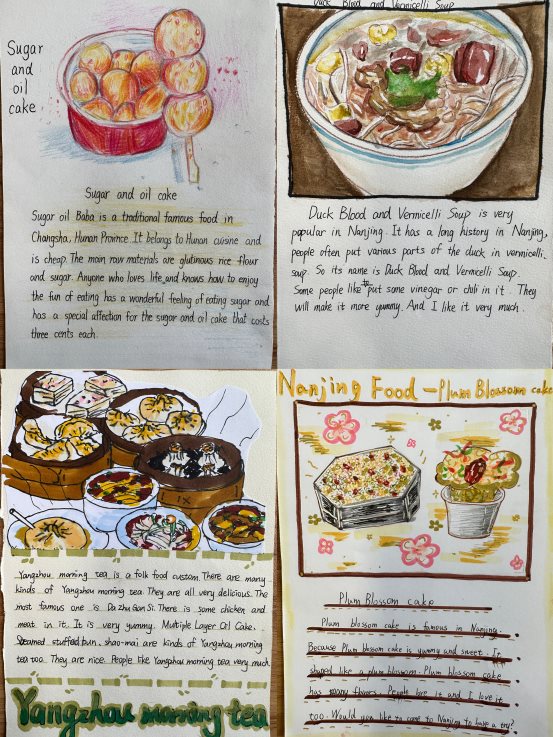 Sugar
and
oil
cake
Sugar and oil cake
Sugar oil Baba is a traditional famous food in
Changsha, Hunan Province. It belongs to Hunan cuisine and
is cheap. The main raw materials are glutinous rice flour
and sugar. Anyone who loves life and knows how to enjoy
the fun of eating has a wonderful feeling of eating sugar and
has a special affection for the sugar and oil cake that costs
three cents each.
Duck Blood and Vermicelli Soup
Duck Blood and Vermicelli Soup is very
popular in Nanjing. It has a long history in Nanjing,
people often put various parts of the duck in vermicelli
soup. So its name is Duck Blood and Vermicelli Soup.
Some people like to put some vinegar or chili in it. They
will make it more yummy. And I like it very much.
Yangzhou morning tea is a folk food custom. There are many
kinds of Yangzhou morning tea. They are all very delicious. The
most famous one is Da Zhu Gan Si. There is some chicken and
meat in it. It is very yummy. Multiple Layer Oil Cake.
Steamed stuffed bun, shao-mai are kinds of Yangzhou morning
tea too. They are nice. People like Yangzhou morning tea very much.
Yangzhou morning tea
Nanjing Food - Plum Blossom cake
Plum Blossom cake
Plum blossom cake is famous in Nanjing.
Because Plum blossom cake is yummy and sweet. It
shaped like a plum blossom. Plum blossom cake
has many flavors. People love it and I love it
too. Would you like to come to Nanjing to have a try?